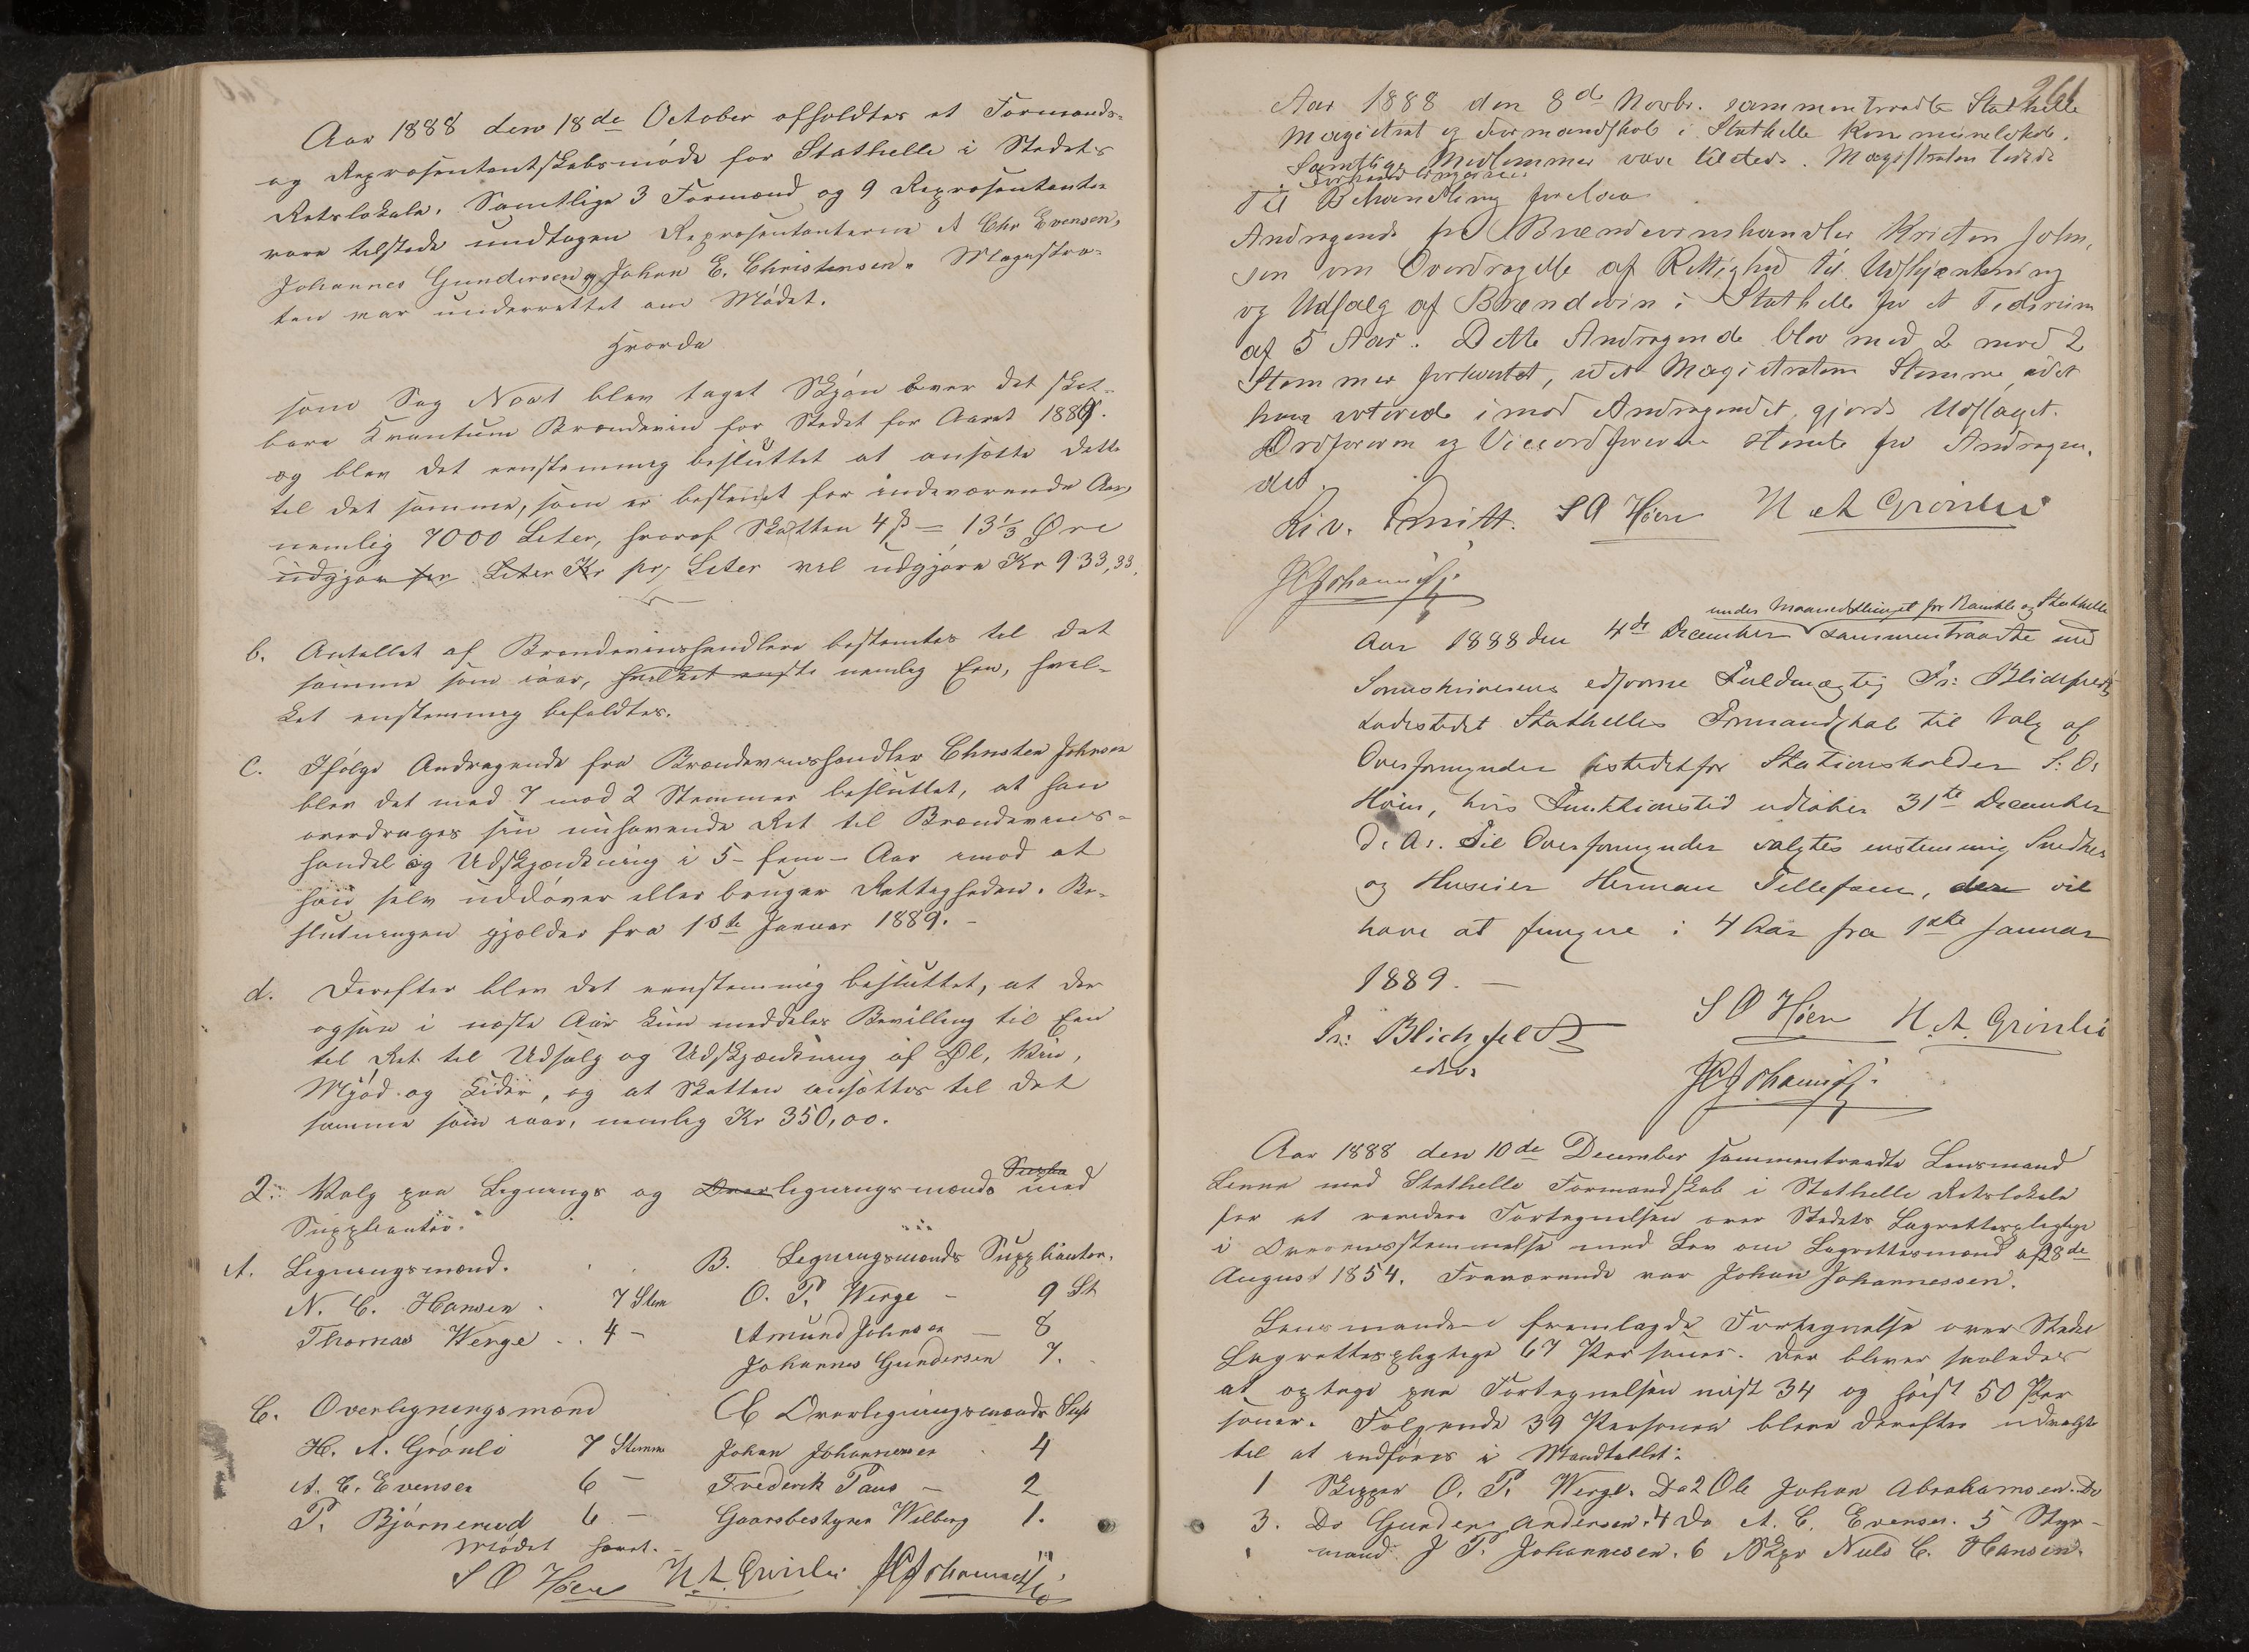 Aar 1888 den 18de October afholdtes et Formands-
og Repræsentantskabsmøde for Stathelle i Stedets
Retslokale. Samtlige 3 Formænd og 9 Repræsentanter
vare tilstede undtagen Repræsentanterne A Chr Evensen,
Johannes Gundersen og Johan E. Christensen. Magistra-
ten var underrettet om Mødet.
Hvorda
som Sag No 1 blev taget Skjøn over det skat-
bare Kvantum Brændevin for Stedet for Aaret 1889.
og blev det eenstemmig besluttet at ansætte dette
til det samme, som er bestemt for indeværende Aar,
nemlig 7000 Liter, hvoraf Skatten 4 ß = 13 1/3 Øre
udgjør pr Liter Kr pr, Liter vil udgjøre Kr 933,33.
b. Antallet af Brændevinshandlere bestemtes til det
samme som iaar, hvilket nemlig Een, hvil-
ket enstemmig befaldtes.
c. Ifølge Andragende fra Brændevinshandler Christen Johnsen
blev det med 7 mod 2 Stemmer besluttet, at han
overdrages sin nuhavende Ret til Brændevins-
handel og Udskjænkning i 5 - fem - Aar imod at
han selv uddøver eller bruger Rettigheden. Be-
slutningen gjælder fra 1ste Januar 1889. -
d. Derefter blev det eenstemmig besluttet, at der
ogsaa i næste Aar kun meddeles Bevilling til Een
til Ret til Udsalg og Udskjænkning af Øl, Vin,
Mjød og Cider, og at Skatten ansættes til det
samme som iaar, nemlig Kr 350,00.
2. Valg paa Lignings og Over ligningsmænd Suppl med
Suppleanter.
A. Ligningsmænd. B. Ligningsmænds Suppleanter.
N. C. Hansen 7 Stem O. P. Werge - 9 St
Thomas Werge 4 - Amund Johnsen - 8
Johannes Gundersen 7.
C. Overligningsmænd Overligningsmænds Sup
H. A. Grønli 7 Stemme Johan Johannessen 4
A. C. Evensen 6 - Frederik Paus - 2
P. Bjørnerød 6 - Gaarsbestyrer Wilberg 1.
Mødet hævet.
S O Høen H. A. Grönli J Johanness
261
Aar 1888 den 8de Novbr. sammentraadte Stathelle
Magistrat og Formandskab i Stathelle Kommunelokale.
Samtlige Medlemmer vare tilstede. Magistraten ledede
Forhandlingerne
Til Behandling forelaa
Andragende fra Brændevinshandler Kristen John-
sen om Overdragelse af Rettighed til Udskjænkning
og Udsalg af Brændevin i Stathelle for et Tidsrum
af 5 Aar. Dette Andragende blev med 2 mod 2
Stemmer forkastet, idet Magistratens Stemme, idet
han voterede imod Andragendet, gjorde Udslaget.
Ordføreren og Viceordføreren stemte for Andragen-
det.
Smitt. S O Høen H. A Grönli
J Johanness
under Maanedsthinget for Bamble og Stathelle
Aar 1888 den 4de December sammentraadte ved
Sorenskriverens edsvorne Fuldmægtig Fr: Blichfeldt
Ladestedet Stathelles Formandskab til Valg af
Overformynder istedetfor Stationsholder S: O:
Høen, hvis Funktionstid udløber 31te December
d. A. Til Overformynder valgtes enstemmig Snedker
og Huseier Herman Tellefsen, der vil
have at fungere i 4 Aar fra 1ste Januar
1889. -
Fr: Blichfeldt S O Høen H. A. Grönli
edsv. J Johanness
Aar 1888 den 10de December sammentraadte Lensmand
Linna med Stathelle Formandskab i Stathelle Retslokale
for at revidere Fortegnelsen over Stedets Lagrettespligtige
i Overensstemmelse med Lov om Lagrettesmænd af 28de
August 1854. Fraværende var Johan Johannessen.
Lensmanden fremlagde Fortegnelse over Stedets
Lagrettespligtige 67 Personer. Der bliver saaledes
at optage paa Fortegnelsen mist 34 og høist 50 Per
soner. Følgende 39 Personer bleve derefter udvalgte
til at indføres i Mandtallet:
1 Skipper O. P. Werge. Do 2 Ole Johan Abrahamsen. Do
3. Do Gunder Andersen. 4 Do A. C. Evensen. 5 Styr-
mand J P. Johannesen. 6 Skpr Niels C. Hansen.